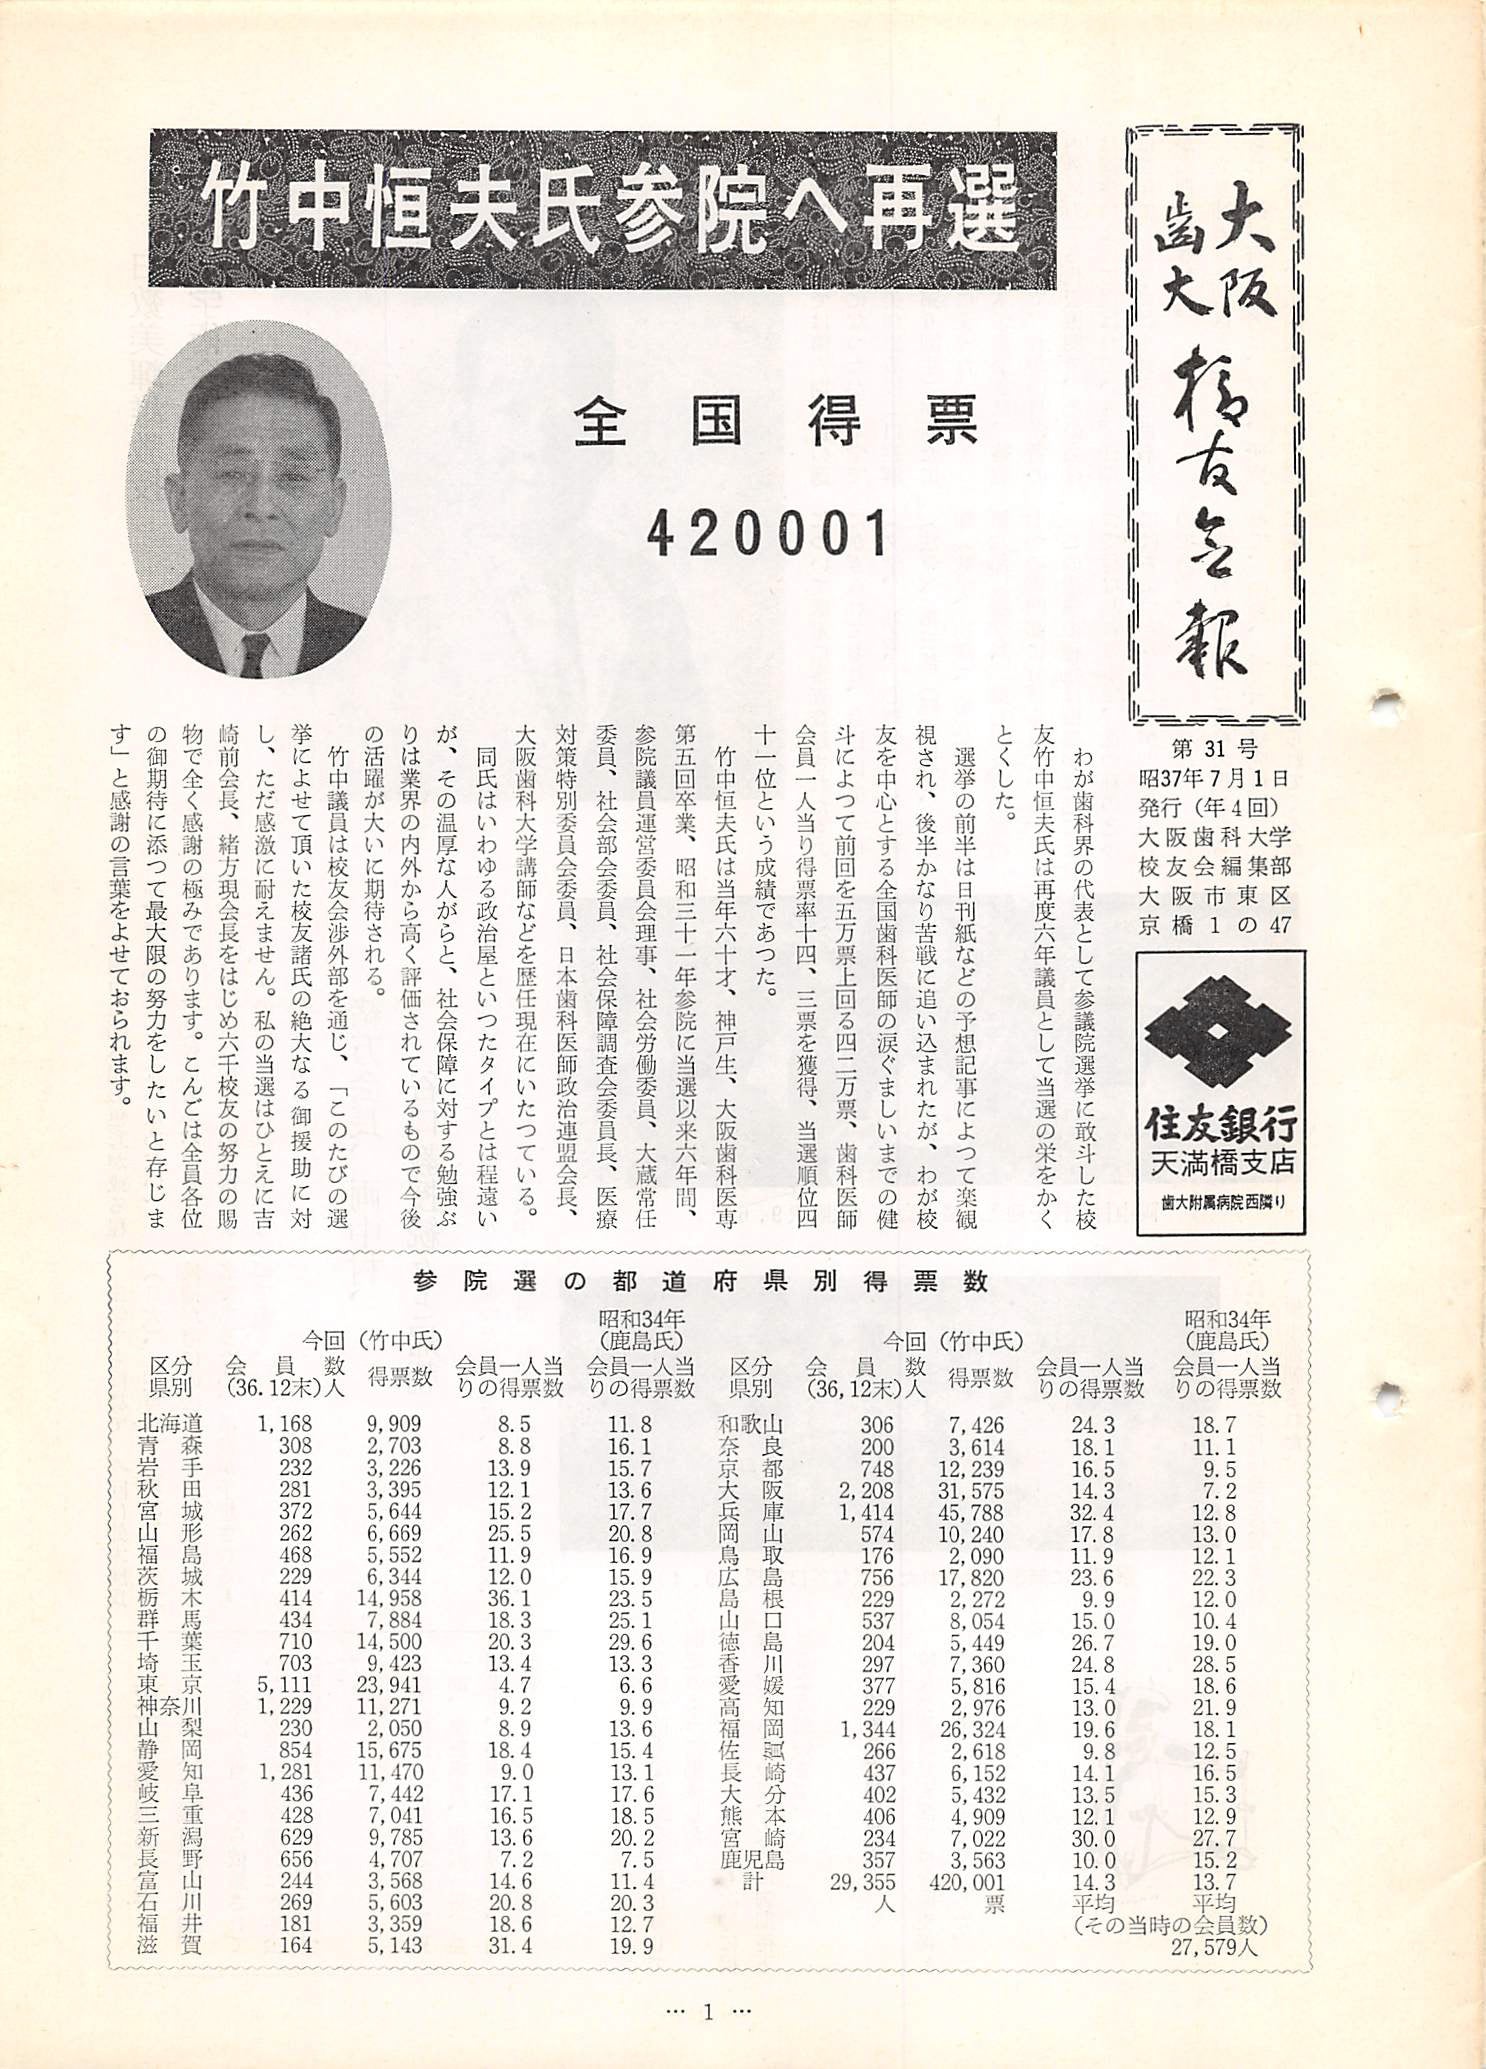 竹中恒夫氏参院へ再選
大阪
歯大
校友会報
第31号
昭37年7月1日
発行(年4回)
大阪歯科大学
校友会編集部
大阪市東区
京橋1の47
住友銀行
天満橋支店
歯大附属病院西隣り
全国得票
420001
わが歯科界の代表として参議院選挙に敢斗した校
友竹中恒夫氏は再度六年議員として当選の栄をかく
とくした。
選挙の前半は日刊紙などの予想記事によつて楽観
視され、後半かなり苦戦に追い込まれたが、わが校
友を中心とする全国歯科医師の涙ぐましいまでの健
斗によつて前回を五万票上回る四二万票、歯科医師
会員一人当り得票率十四、三票を獲得、当選順位四
十一位という成績であつた。
竹中恒夫氏は当年六十才、神戸生、大阪歯科医専
第五回卒業、昭和三十一年参院に当選以来六年間、
参院議員運営委員会理事、社会労働委員、大蔵常任
委員、社会部会委員、社会保障調査会委員長、医療
対策特別委員会委員、日本歯科医師政治連盟会長、
大阪歯科大学講師などを歴任現在にいたつている。
同氏はいわゆる政治屋といつたタイプとは程遠い
が、その温厚な人がらと、社会保障に対する勉強ぶ
りは業界の内外から高く評価されているもので今後
の活躍が大いに期待される。
竹中議員は校友会渉外部を通じ、「このたびの選
挙によせて頂いた校友諸氏の絶大なる御援助に対
し、ただ感激に耐えません。私の当選はひとえに吉
崎前会長、緒方現会長をはじめ六千校友の努力の賜
物で全く感謝の極みであります。こんごは全員各位
の御期待に添つて最大限の努力をしたいと存じま
す」と感謝の言葉をよせておられます。
参院選の都道府県別得票数
区分県別 会員数(36.12末)人 今回(竹中氏) 得票数 会員一人当りの得票数 昭和34年(鹿島氏) 会員一人当りの得票数
北海道 1,168 9,909 8.5 11.8
青森 308 2,703 8.8 16.1
岩手 232 3,226 13.9 15.7
秋田 281 3,395 12.1 13.6
宮城 372 5,644 15.2 17.7
山形 262 6,669 25.5 20.8
福島 468 5,552 11.9 16.9
茨城 229 6,344 12.0 15.9
栃木 414 14,958 36.1 23.5
群馬 434 7,884 18.3 25.1
千葉 710 14,500 20.3 29.6
埼玉 703 9,423 13.4 13.3
東京 5,111 23,941 4.7 6.6
神奈川 1,229 11,271 9.2 9.9
山梨 230 2,050 8.9 13.6
静岡 854 15,675 18.4 15.4
愛知 1,281 11,470 9.0 13.1
岐阜 436 7,442 17.1 17.6
三重 428 7,041 16.5 18.5
新潟 629 9,785 13.6 20.2
長野 656 4,707 7.2 7.5
富山 244 3,568 14.6 11.4
石川 269 5,603 20.8 20.3
福井 181 3,359 18.6 12.7
滋賀 164 5,143 31.4 19.9
区分県別 会員数(36,12末)人 今回(竹中氏) 得票数 会員一人当りの得票数 昭和34年(鹿島氏) 会員一人当りの得票数
和歌山 306 7,426 24.3 18.7
奈良 200 3,614 18.1 11.1
京都 748 12,239 16.5 9.5
大阪 2,208 31,575 14.3 7.2
兵庫 1,414 45,788 32.4 12.8
岡山 574 10,240 17.8 13.0
鳥取 176 2,090 11.9 12.1
広島 756 17,820 23.6 22.3
島根 229 2,272 9.9 12.0
山口 537 8,054 15.0 10.4
徳島 204 5,449 26.7 19.0
香川 297 7,360 24.8 28.5
愛媛 377 5,816 15.4 18.6
高知 229 2,976 13.0 21.9
福岡 1,344 26,324 19.6 18.1
佐賀 266 2,618 9.8 12.5
長崎 437 6,152 14.1 16.5
大分 402 5,432 13.5 15.3
熊本 406 4,909 12.1 12.9
宮崎 234 7,022 30.0 27.7
鹿児島 357 3,563 10.0 15.2
計 29,355 420,001 14.3 13.7
人 票 平均 平均
(その当時の会員数)
27,579人
… 1 …